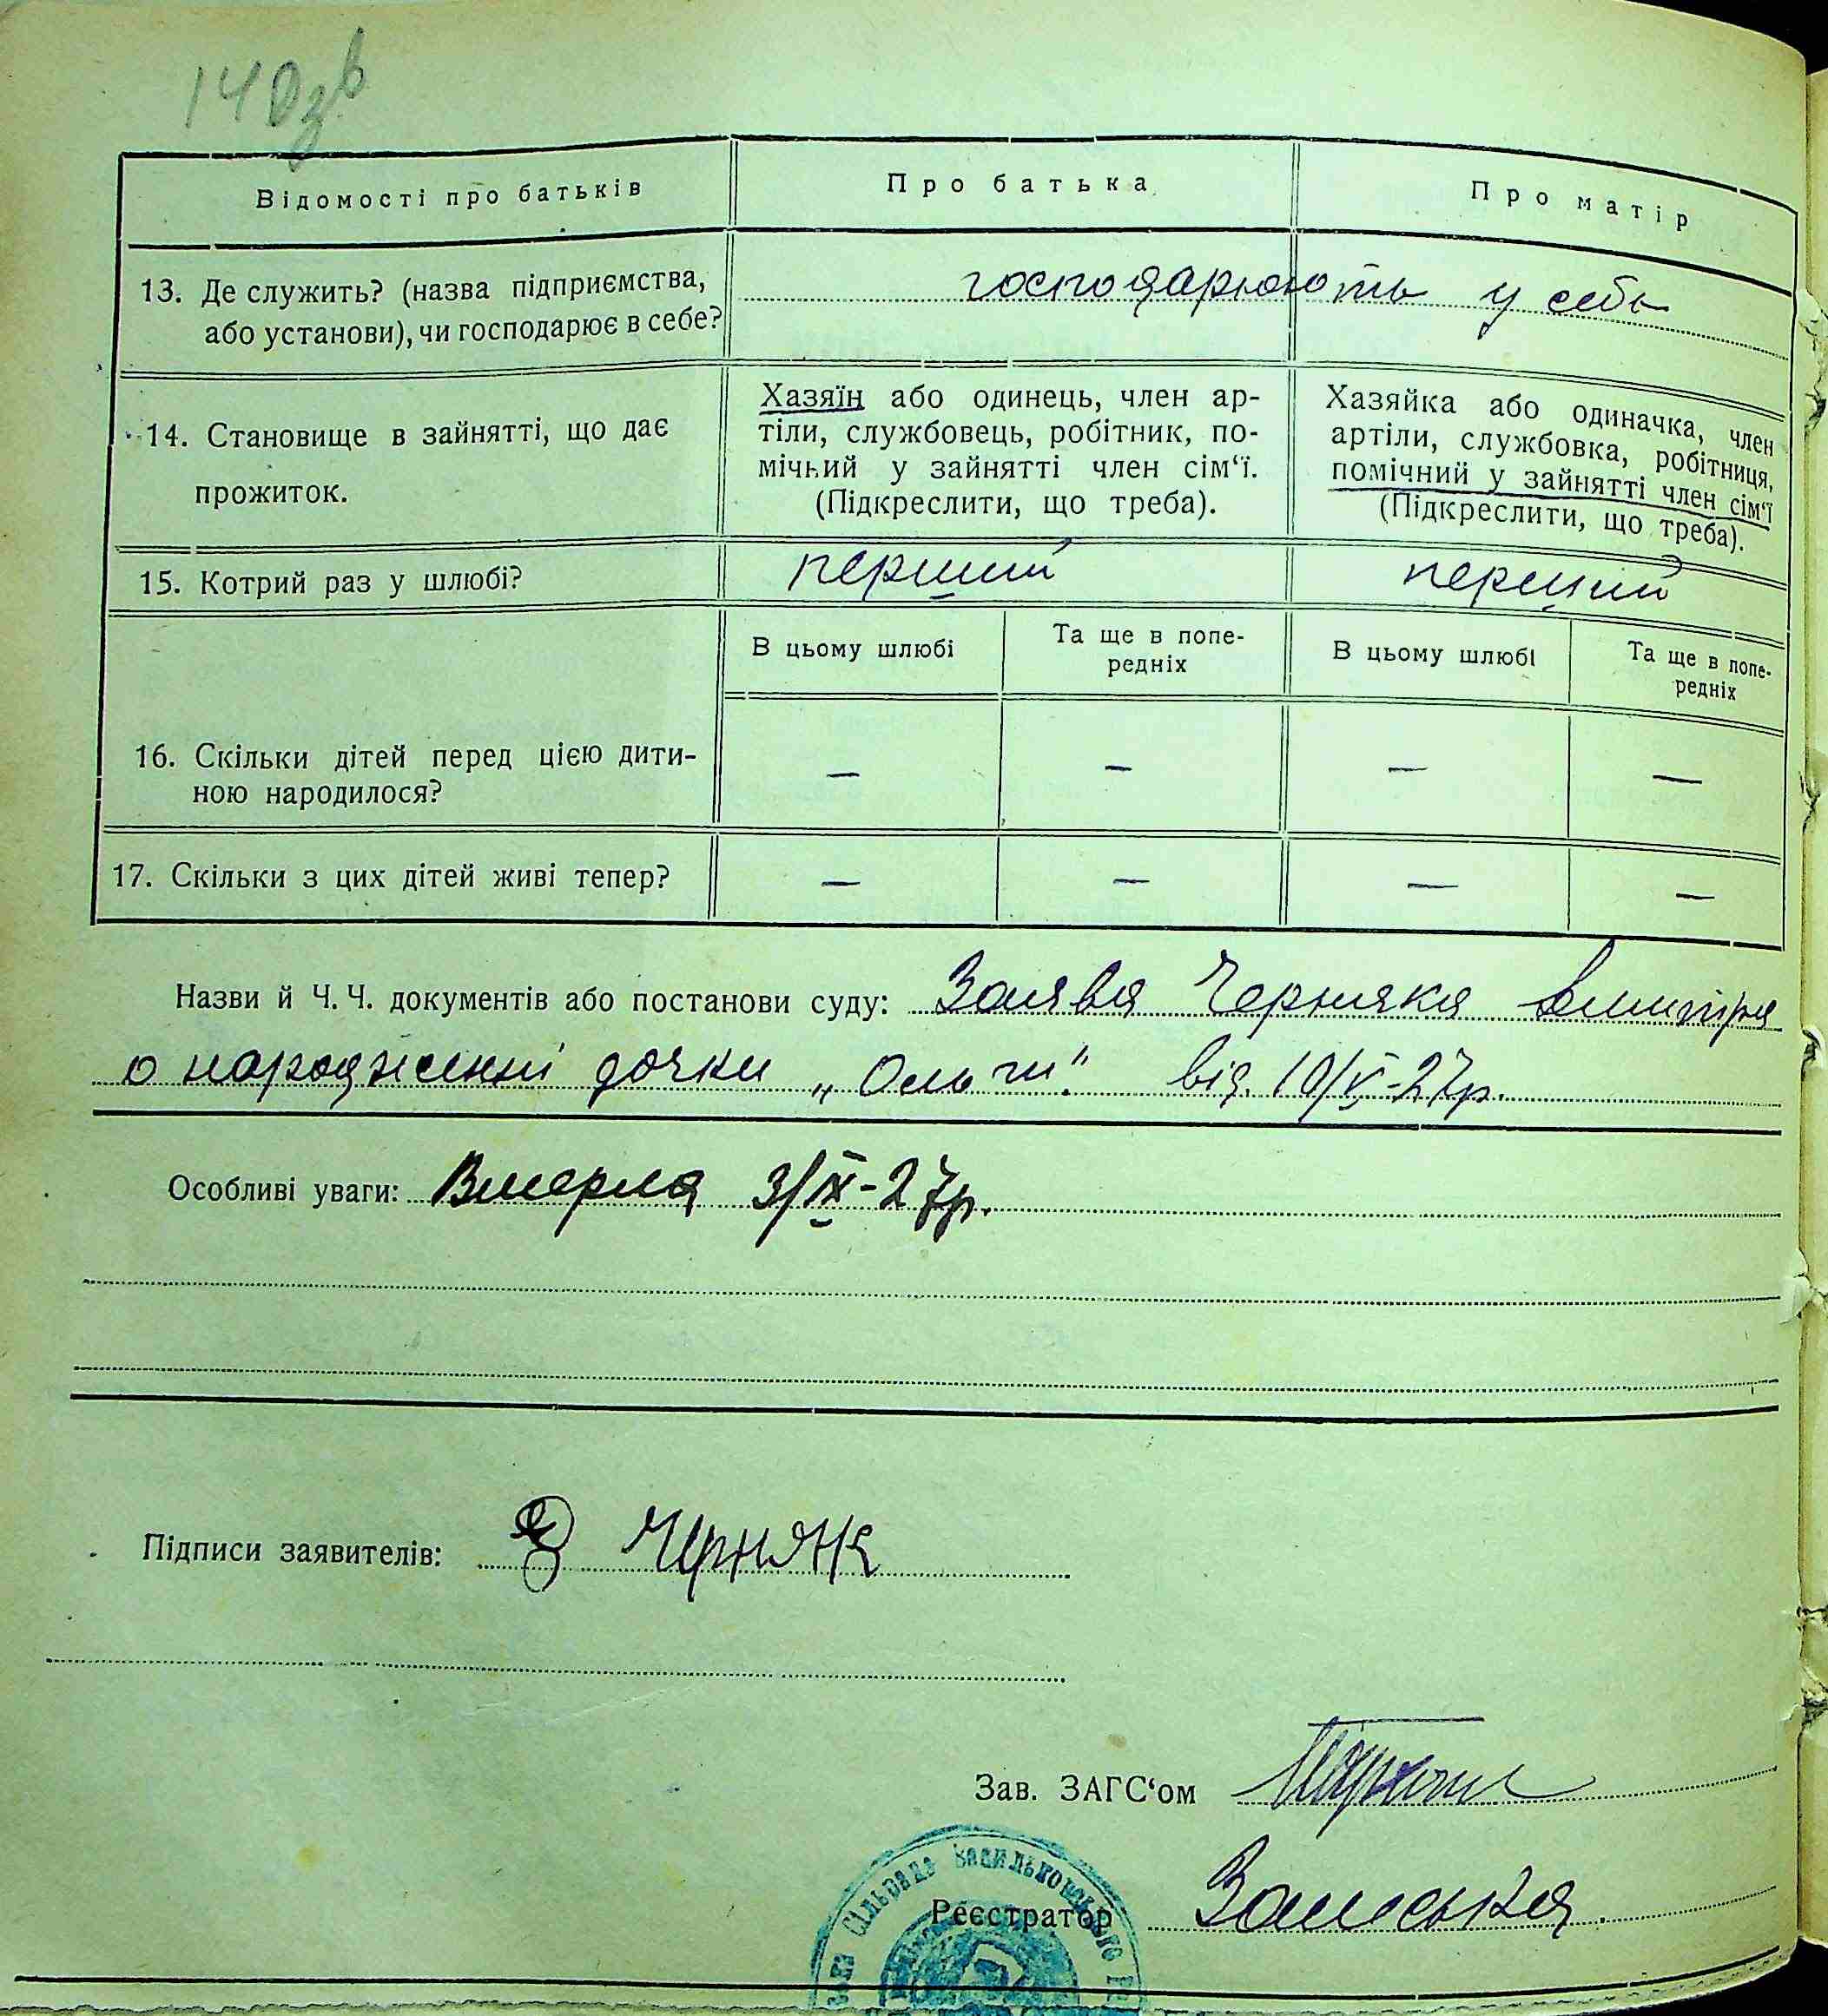 140зв
Відомості про батьків
Про батька
Про матір
13. Де служить? (назва підприємства,
або установи), чи господарює в себе?
господарюють у себь
14. Становище в зайнятті, що дає
прожиток.
Хазяїн або одинець, член ар-
тіли, службовець, робітник, по-
мічний у зайнятті член сім‘ї.
(Підкреслити, що треба).
Хазяйка або одиначка, член
артіли, службовка, робітниця,
помічний у зайнятті член сім‘ї
(Підкреслити, що треба).
15. Котрий раз у шлюбі?
перший
перший
В цьому шлюбі
Та ще в попе-
редніх
В цьому шлюбі
Та ще в попе-
редніх
16. Скільки дітей перед цією дити-
ною народилося?
— — — —
17. Скільки з цих дітей живі тепер?
— — — —
Назви й Ч. Ч. документів або постанови суду: Заява Черняка
о народженні дочки „Ольги". від. 10/V-27р.
Особливі уваги: Вмерла 3/IX-27р.
Підписи заявителів: Черняк
Зав. ЗАГС‘ом
Реєстратор
Сільрада Васильковського